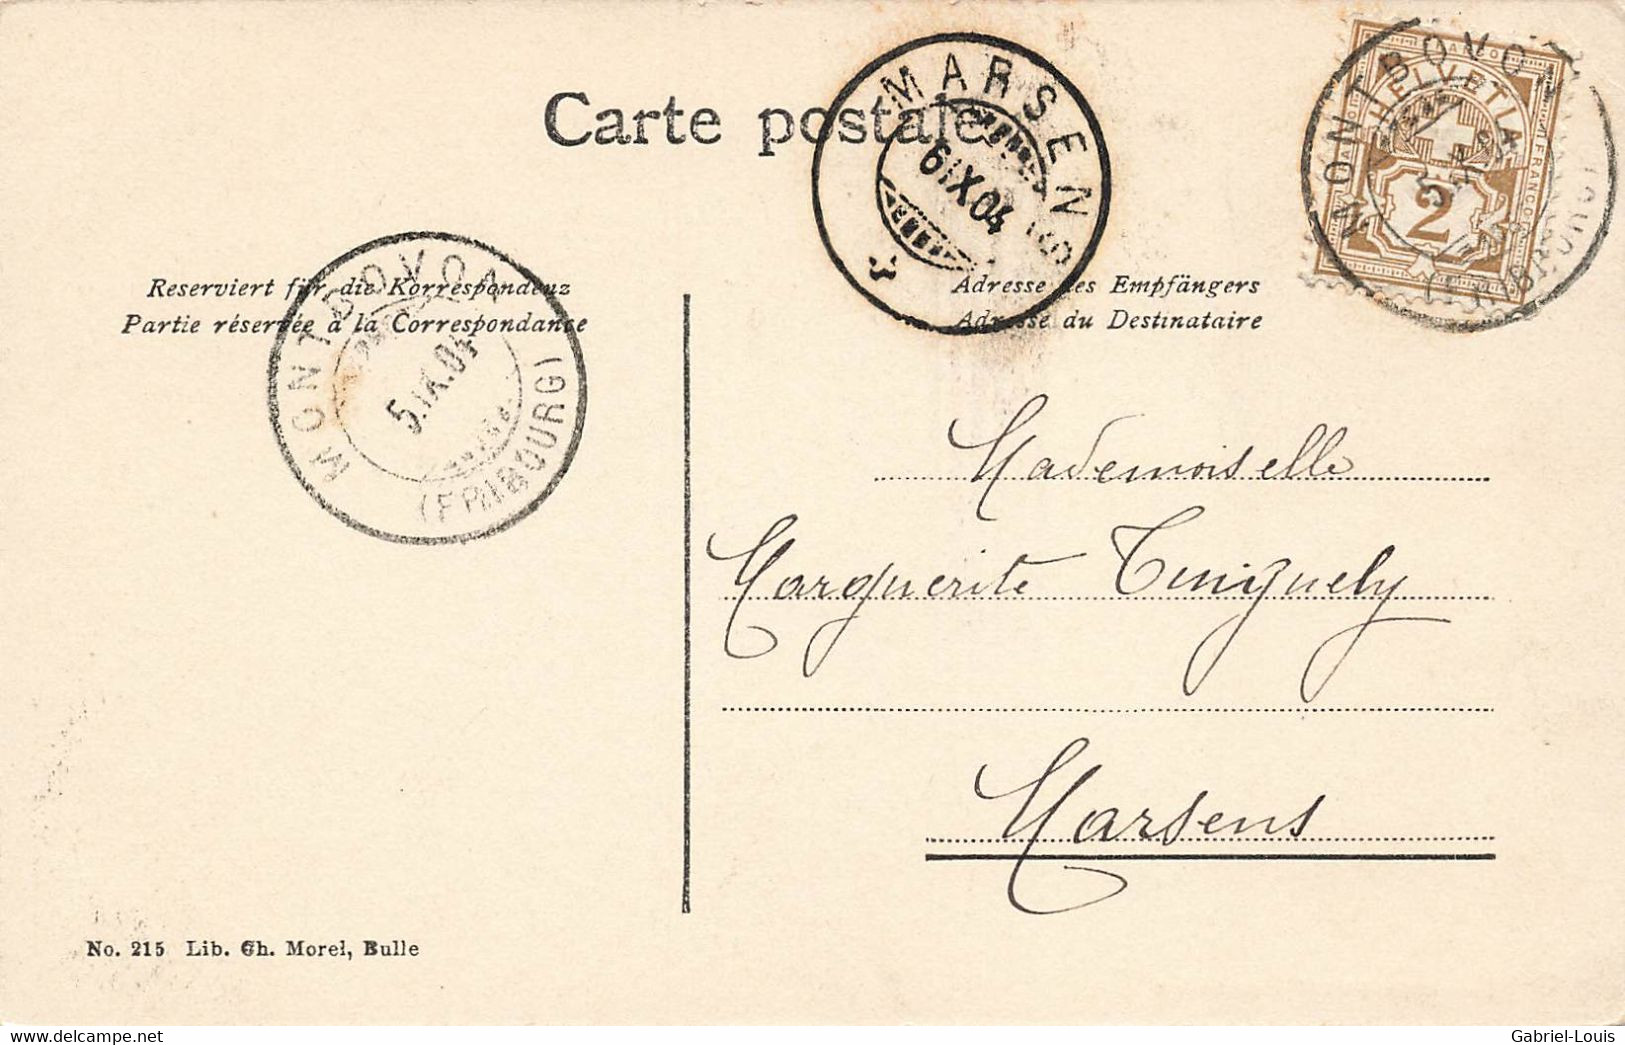 Carte postale
MARSENS
6.IX.04
MONTBOVON
5.IX.04
HELVETIA
2
FRANCO
Reserviert für die Korrespondenz
Partie réservée à la Correspondance
Adresse des Empfängers
Adresse du Destinataire
MONTBOVON
5.IX.04
(FRIBOURG)
Mademoiselle
Marguerite Tinguely
Marsens
No. 215 Lib. Ch. Morel, Bulle
www.delcampe.net
Gabriel-Louis